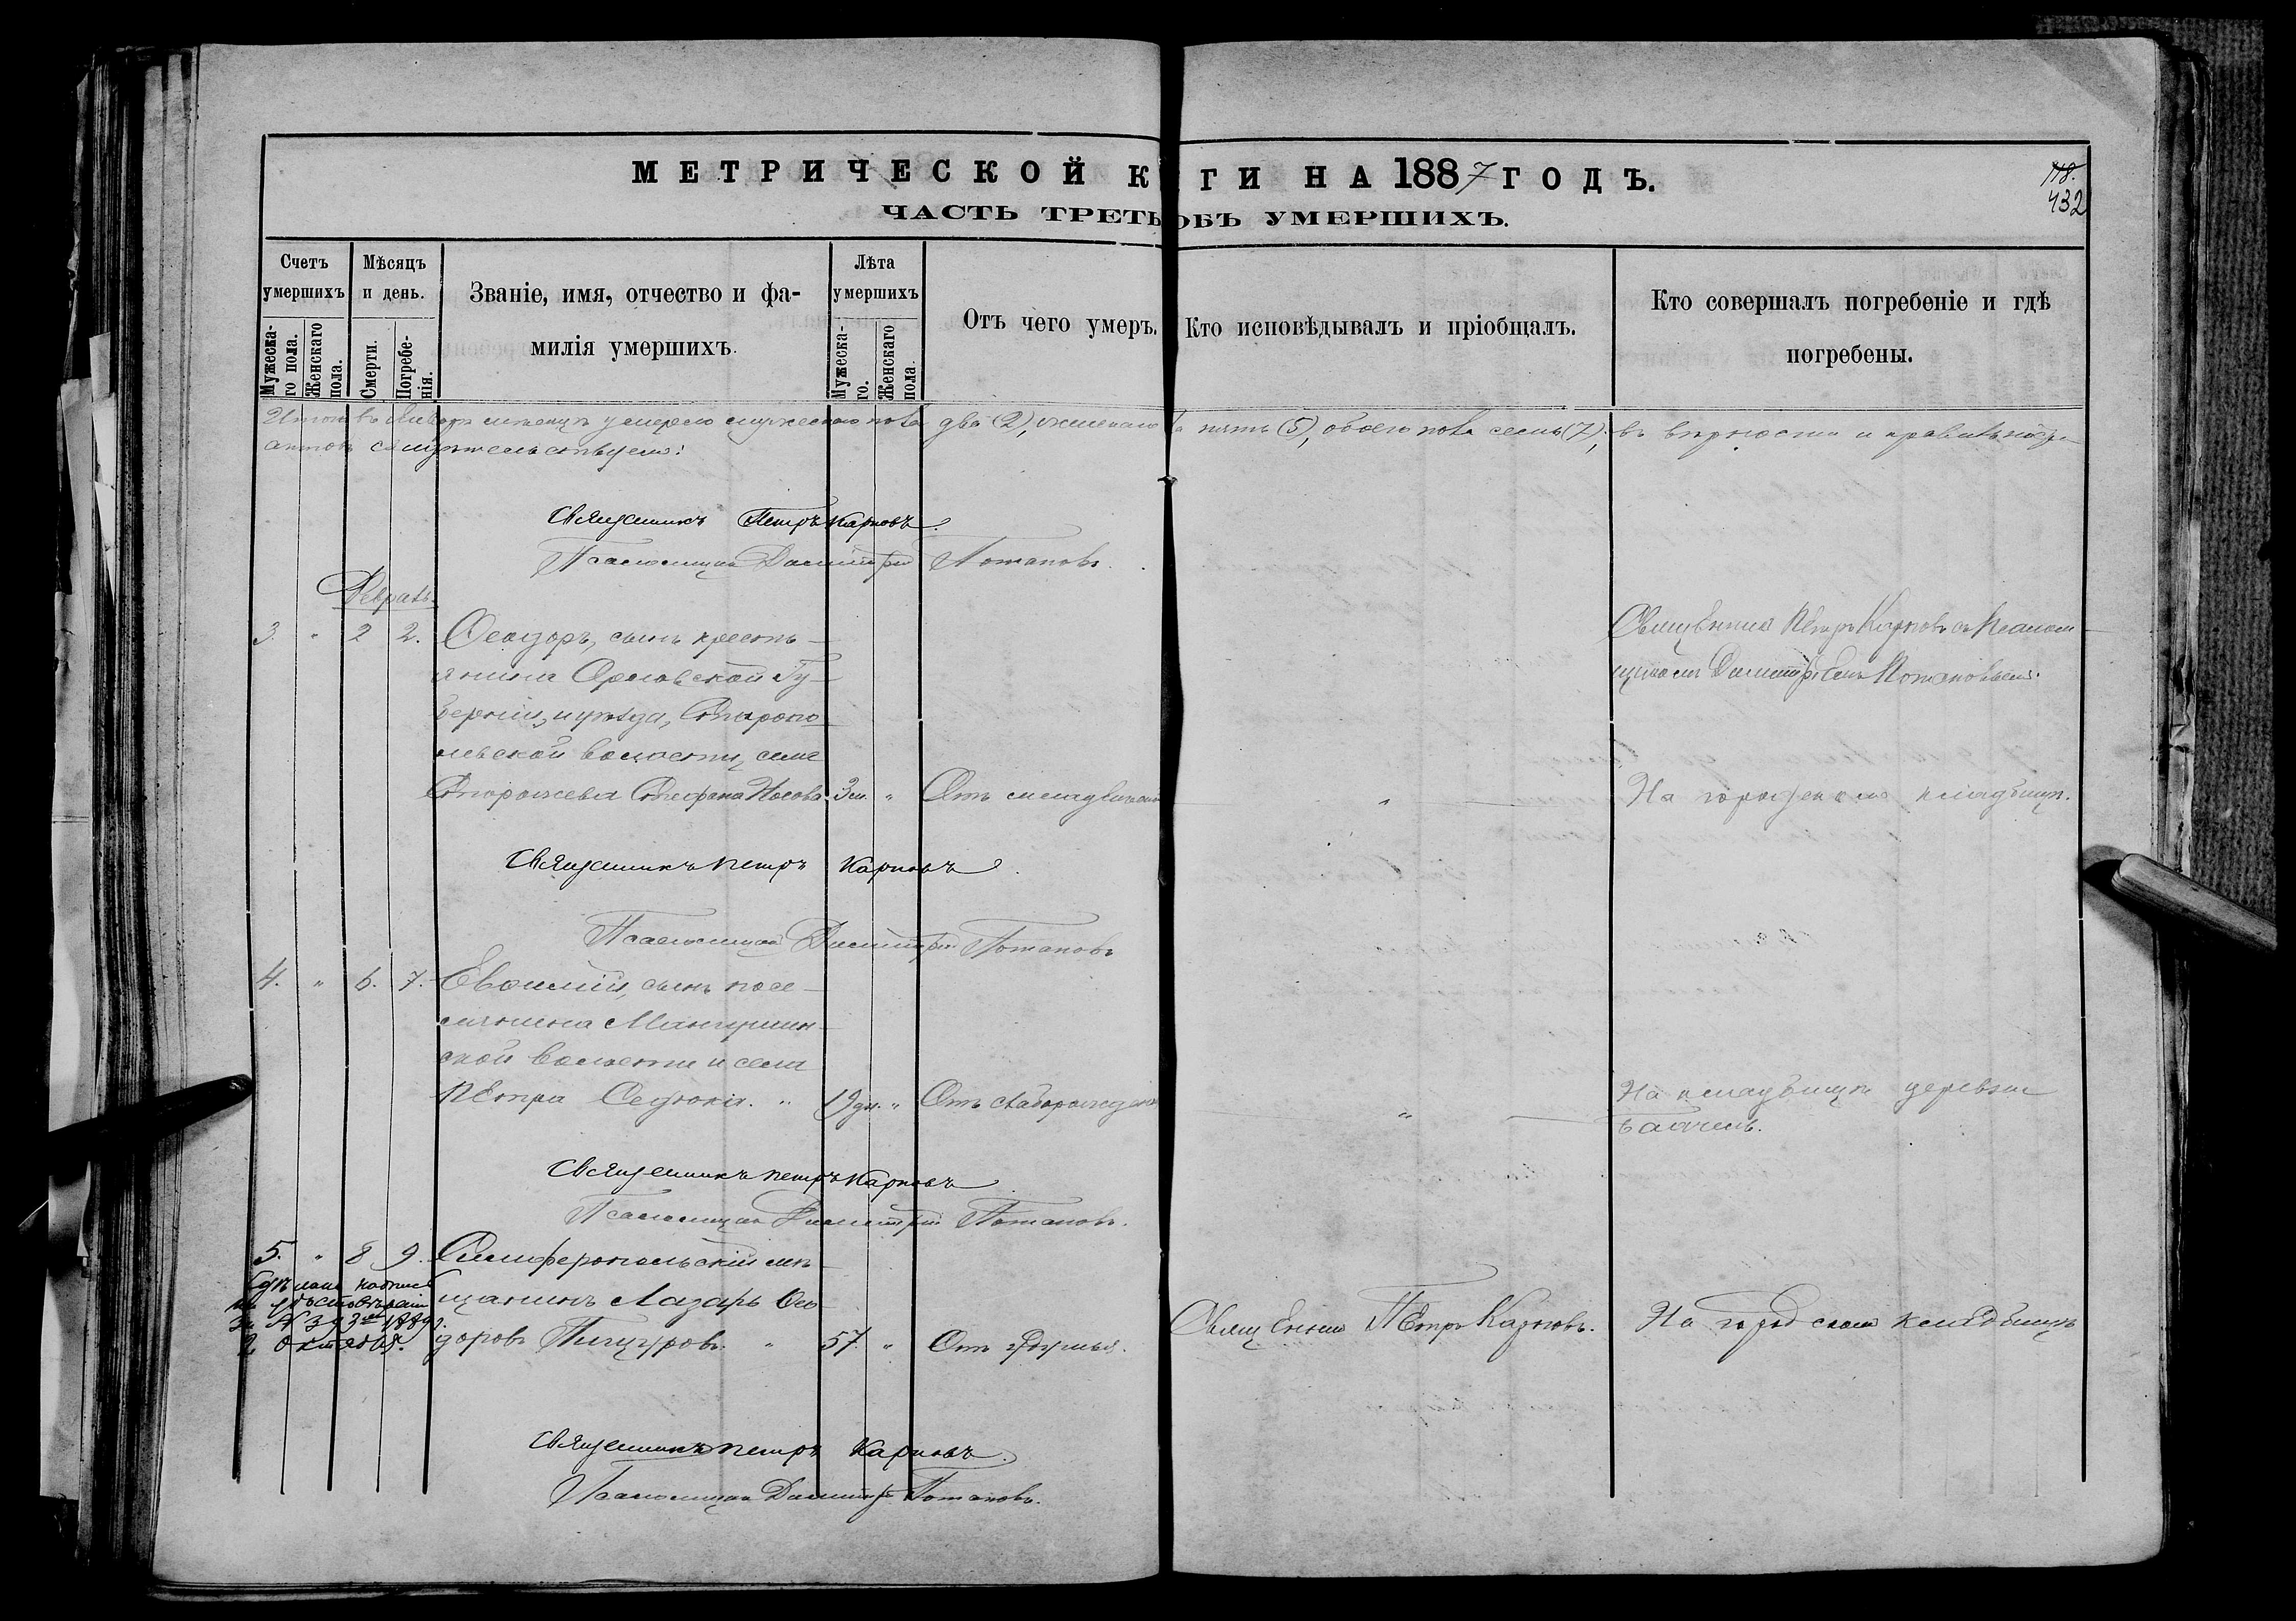 МЕТРИЧЕСКОЙ К ГИ НА 1887 ГОДЪ.
118.
432
ЧАСТЬ ТРЕТЬ ОБЪ УМЕРШИХЪ.
Счетъ умершихъ
Мужеска-го пола.
Женскаго пола.
Мѣсяцъ и день.
Смерти.
Погребе-нія.
Званіе, имя, отчество и фа-
милія умершихъ.
Лѣта умершихъ
Мужеска-го.
Женскаго пола.
Отъ чего умеръ.
Кто исповѣдывалъ и пріобщалъ.
Кто совершалъ погребеніе и гдѣ
погребены.
Итого въ Январѣ мѣсяцѣ умерло мужескаго пола два (2), женскаго пять (5), обоего пола семь (7), въ вѣрности и
актовъ свидѣтельствуемъ:
Священникъ Петръ Карповъ.
Псаломщикъ Димитрій Потаповъ.
Февраль.
3. " 2 2. Ѳеодоръ, сынъ кресть-
янина Орловской Гу-
берніи, и уѣзда,
волости, села
Сторожева Стефана Носова 3 м. " Отъ " На городскомъ кладбищѣ.
Священникъ Петръ Карповъ съ Псалом-
щикомъ Димитріемъ Потаповымъ.
Священникъ Петръ Карповъ
Псаломщикъ Димитрій Потаповъ
4. " 6. 7. Евѳимій, сынъ посе-
лянина Мангушин-
ской волости и села
Петра " 19 дн. " Отъ слаборожденія " На кладбищѣ деревни
Бадчемъ.
Священникъ Петръ Карповъ
Псаломщикъ Димитрій Потаповъ.
5. " 8 9. Симферопольскій мѣ-
щанинъ Лазарь Ѳео-
доровъ " 57. " Отъ Священникъ Петръ Карповъ. На городскомъ кладбищѣ
Сдѣлана надпись
въ удостовѣреніи
за № 393 1889 г.
2 октября.
Священникъ Петръ Карповъ.
Псаломщикъ Димитрій Потаповъ.